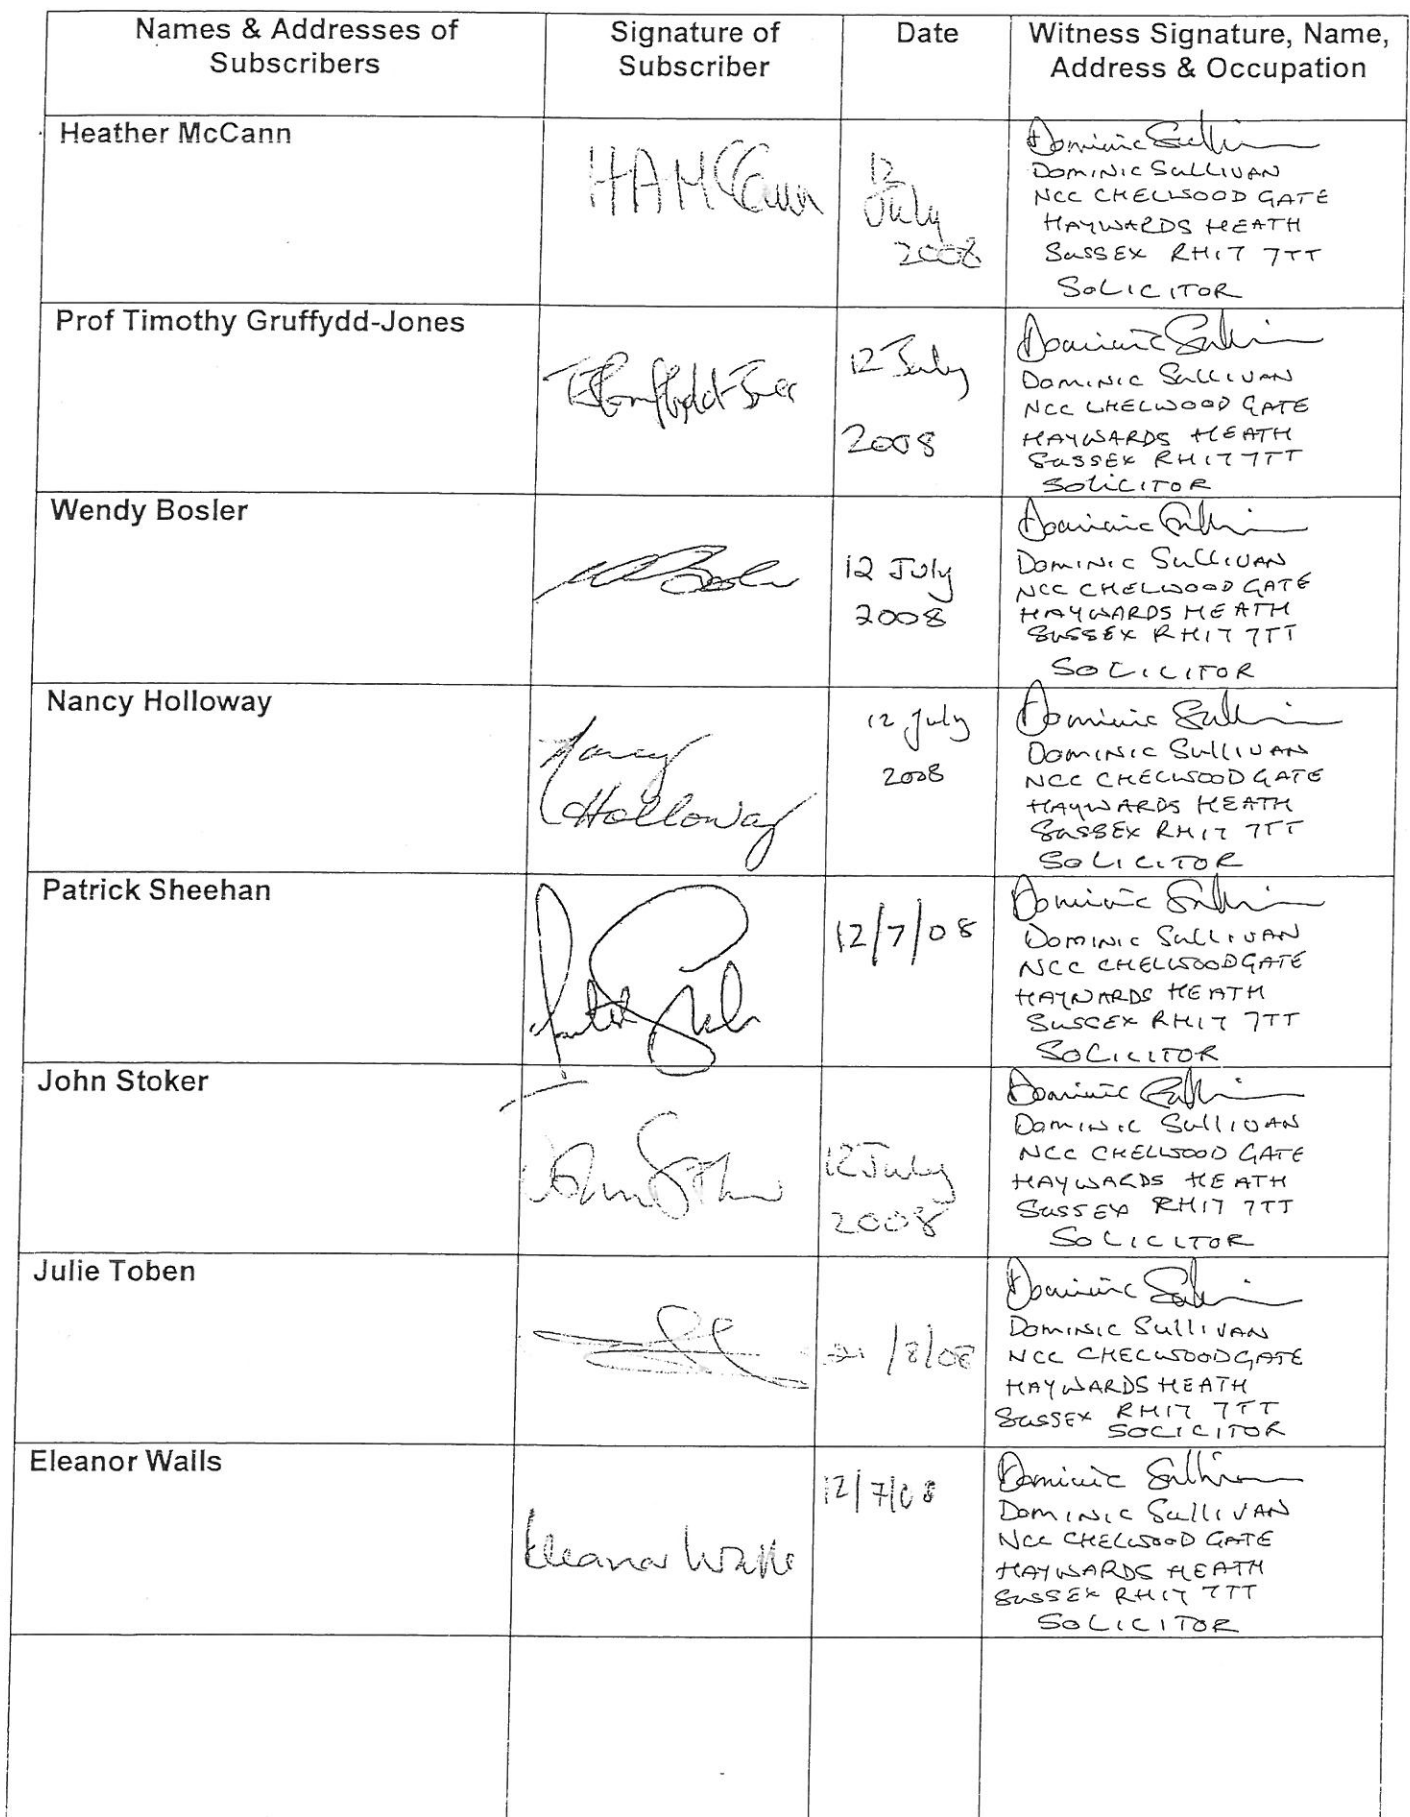 Names & Addresses of
Subscribers
Signature of
Subscriber
Date
Witness Signature, Name,
Address & Occupation
Heather McCann
HAMcCann
12
July
2008
Dominic Sullivan
DOMINIC SULLIVAN
NCC CHELWOOD GATE
HAYWARDS HEATH
SUSSEX RH17 7TT
SOLICITOR
Prof Timothy Gruffydd-Jones
TGruffydd-Jones
12 July
2008
Dominic Sullivan
DOMINIC SULLIVAN
NCC CHELWOOD GATE
HAYWARDS HEATH
SUSSEX RH17 7TT
SOLICITOR
Wendy Bosler
12 July
2008
Dominic Sullivan
DOMINIC SULLIVAN
NCC CHELWOOD GATE
HAYWARDS HEATH
SUSSEX RH17 7TT
SOLICITOR
Nancy Holloway
Nancy
Holloway
12 July
2008
Dominic Sullivan
DOMINIC SULLIVAN
NCC CHELWOOD GATE
HAYWARDS HEATH
SUSSEX RH17 7TT
SOLICITOR
Patrick Sheehan
12/7/08
Dominic Sullivan
DOMINIC SULLIVAN
NCC CHELWOOD GATE
HAYWARDS HEATH
SUSSEX RH17 7TT
SOLICITOR
John Stoker
John Stoker
12 July
2008
Dominic Sullivan
DOMINIC SULLIVAN
NCC CHELWOOD GATE
HAYWARDS HEATH
SUSSEX RH17 7TT
SOLICITOR
Julie Toben
/8/08
Dominic Sullivan
DOMINIC SULLIVAN
NCC CHELWOOD GATE
HAYWARDS HEATH
SUSSEX RH17 7TT
SOLICITOR
Eleanor Walls
Eleanor Walls
12/7/08
Dominic Sullivan
DOMINIC SULLIVAN
NCC CHELWOOD GATE
HAYWARDS HEATH
SUSSEX RH17 7TT
SOLICITOR